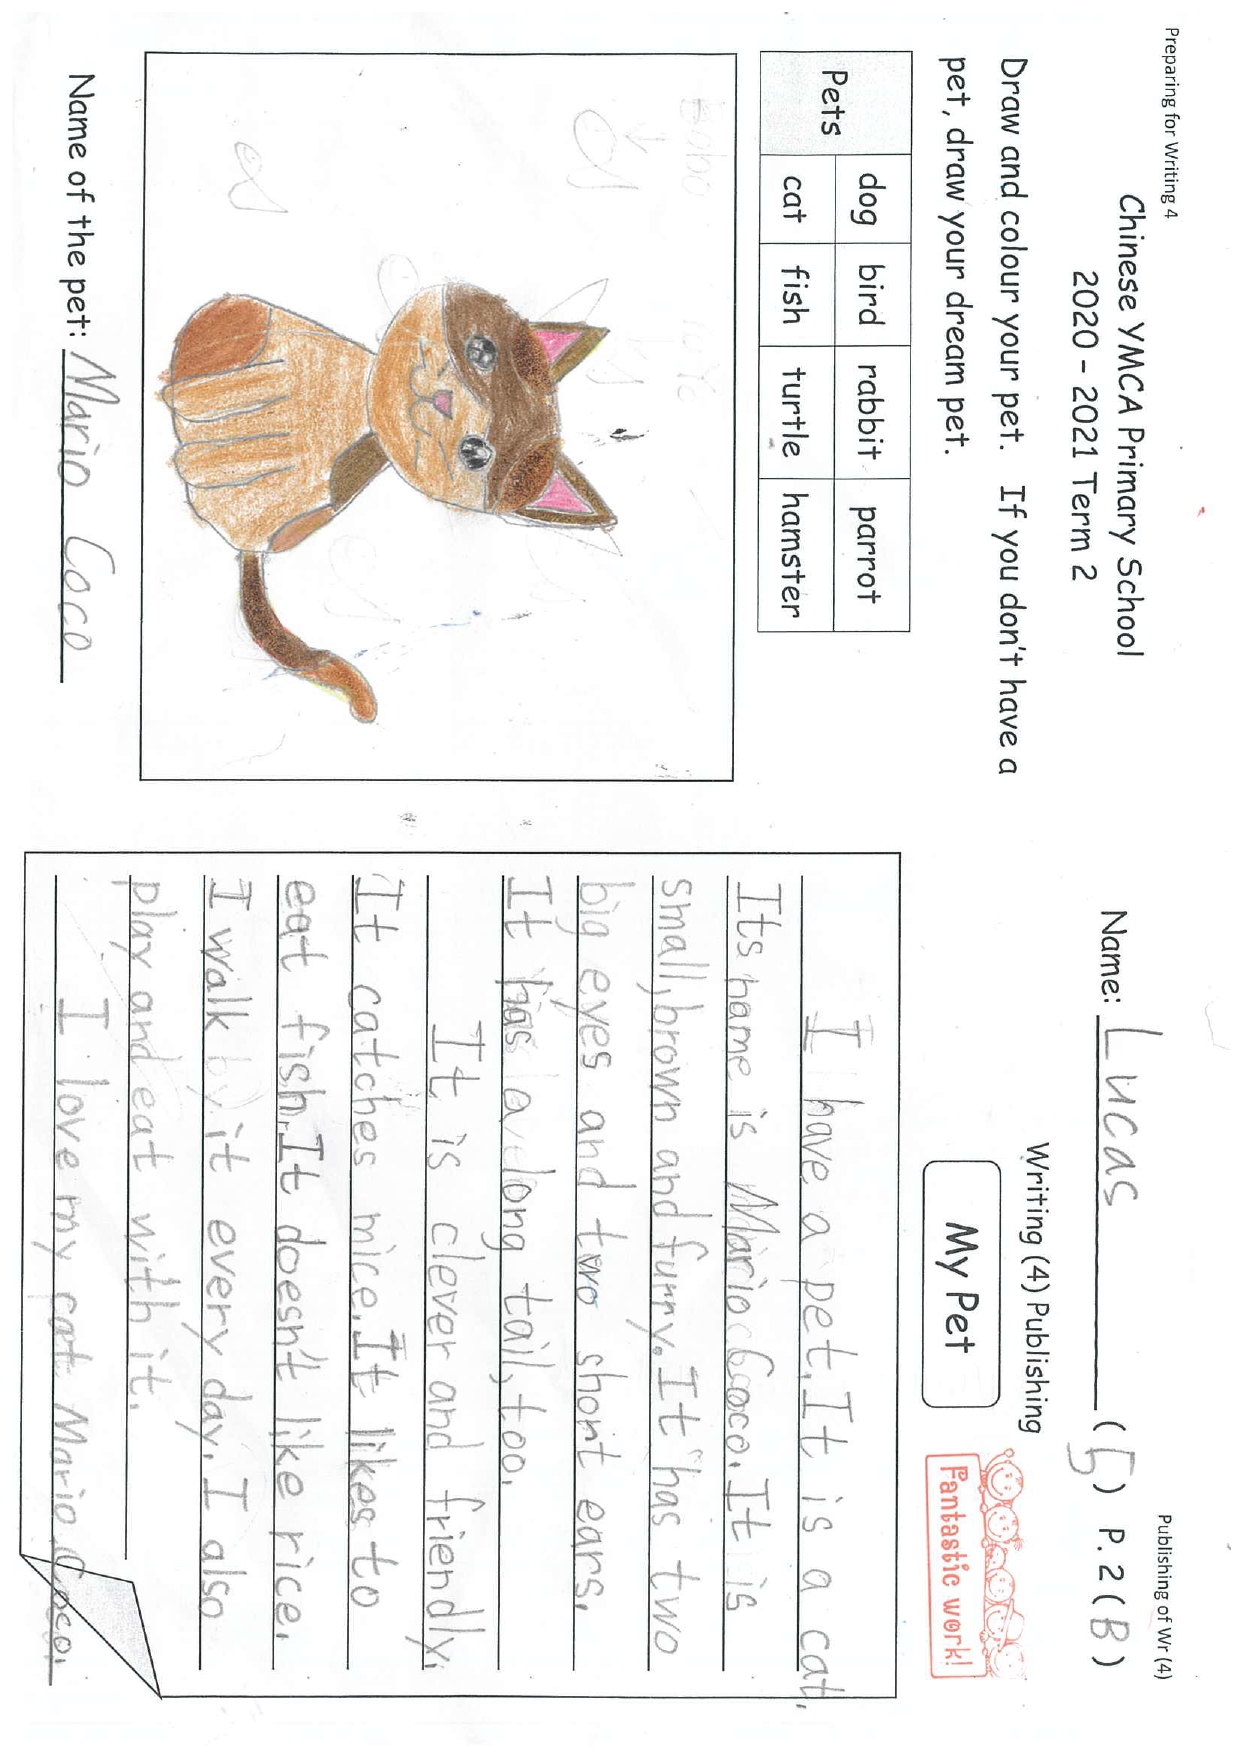 Preparing for Writing 4
Chinese YMCA Primary School
2020 - 2021 Term 2
Draw and colour your pet. If you don't have a
pet, draw your dream pet.
Pets
dog bird rabbit parrot
cat fish turtle hamster
Name of the pet: Mario Coco
Publishing of Wr (4)
Name: Lucas (5) P.2 (B)
Writing (4) Publishing
My Pet
Fantastic work!
I have a pet. It is a cat.
Its name is Mario Coco. It is
small, brown and furry. It has two
big eyes and two short ears.
It has a long tail, too.
It is clever and friendly.
It catches mice. It likes to
eat fish. It doesn't like rice.
I walk it every day. I also
play and eat with it.
I love my cat Mario Coco.